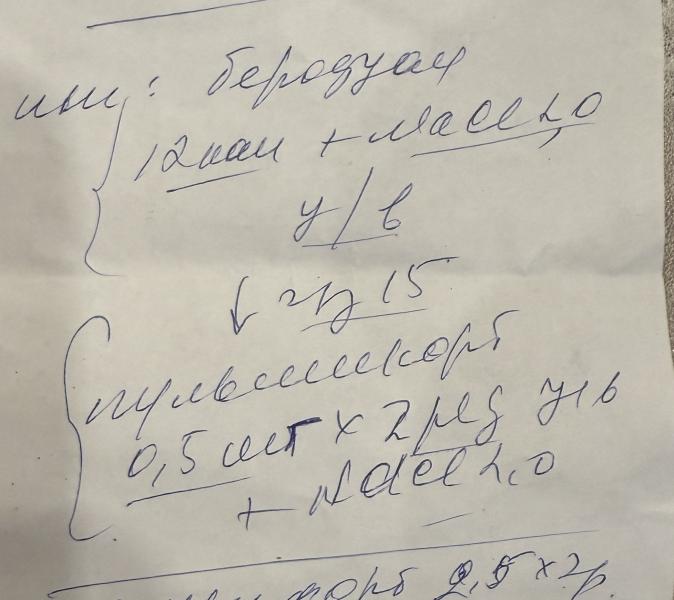 инг: беродуал
12 кап + NaCl 2,0
у/в
↓ чрз 15
пульмикорт
0,5 мг х 2 р/д у/в
+ NaCl 2,0
форт 2,5 х 2р.